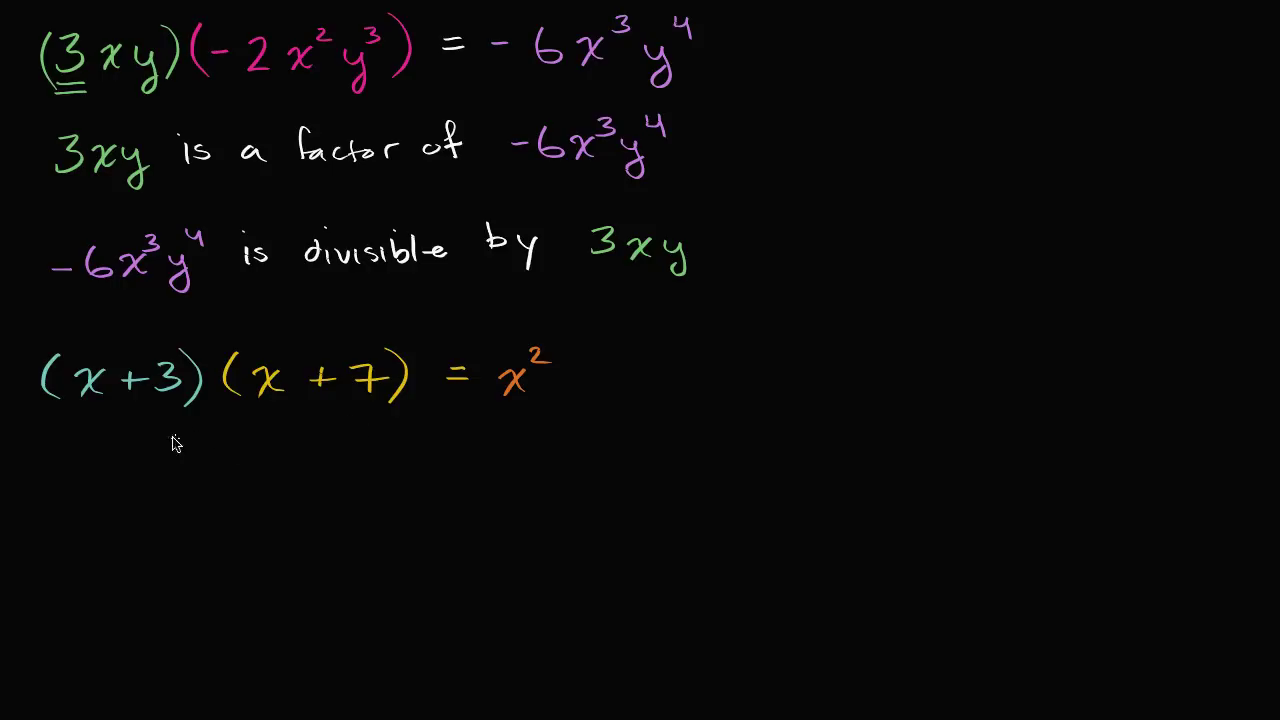 (3xy)(-2x²y³) = -6x³y⁴
3xy is a factor of -6x³y⁴
-6x³y⁴ is divisible by 3xy
(x+3)(x+7) = x²